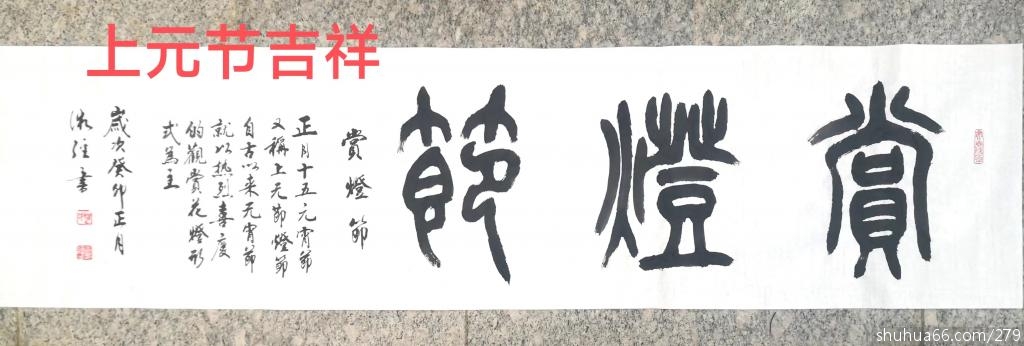 上元节吉祥
賞燈節
賞燈節
正月十五元宵節
又稱上元節燈節
自古以来元宵節
就以热烈喜度
的觀賞花燈形
式爲主
歲次癸卯正月
書
shuhua66.com/279